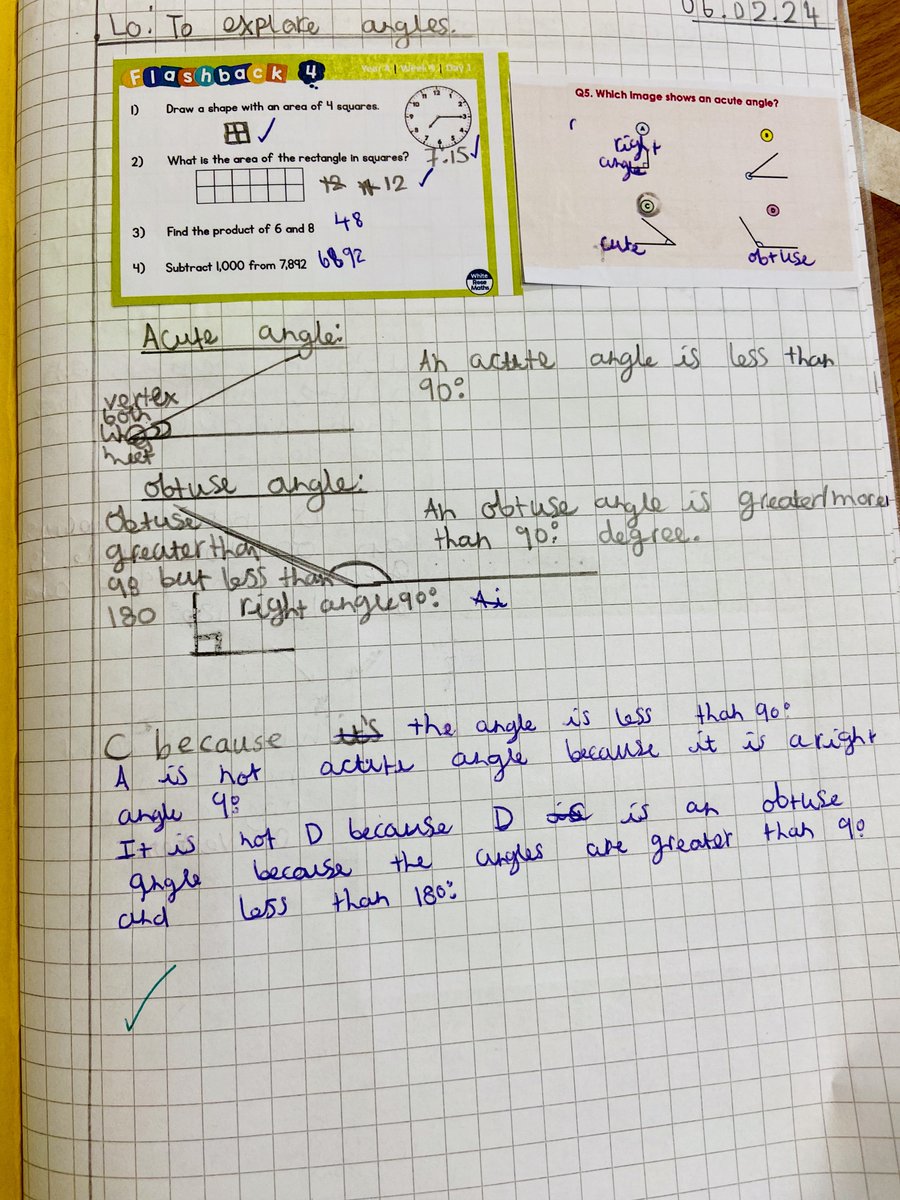 06.02.24
Lo: To explore angles.
Flashback 4
Year 4 | Week 4 | Day 1
1) Draw a shape with an area of 4 squares.
7.15
2) What is the area of the rectangle in squares?
12
3) Find the product of 6 and 8 48
4) Subtract 1,000 from 7,892 6892
White Rose Maths
Q5. Which image shows an acute angle?
A
right
angle
B
C
cute
D
obtuse
Acute angle:
An actute angle is less than
90°
vertex
both
meet
obtuse angle:
An obtuse angle is greater/more
than 90° degree.
Obtuse
greater than
90 but less than
180
right angle 90°
C because it's the angle is less than 90°
A is not actute angle because it is a right
angle 90
It is not D because D is is an obtuse
angle because the angles are greater than 90
and less than 180°